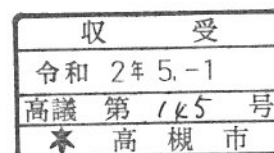 収 受
令和 2年 5.-1
高議 第 145 号
高槻市